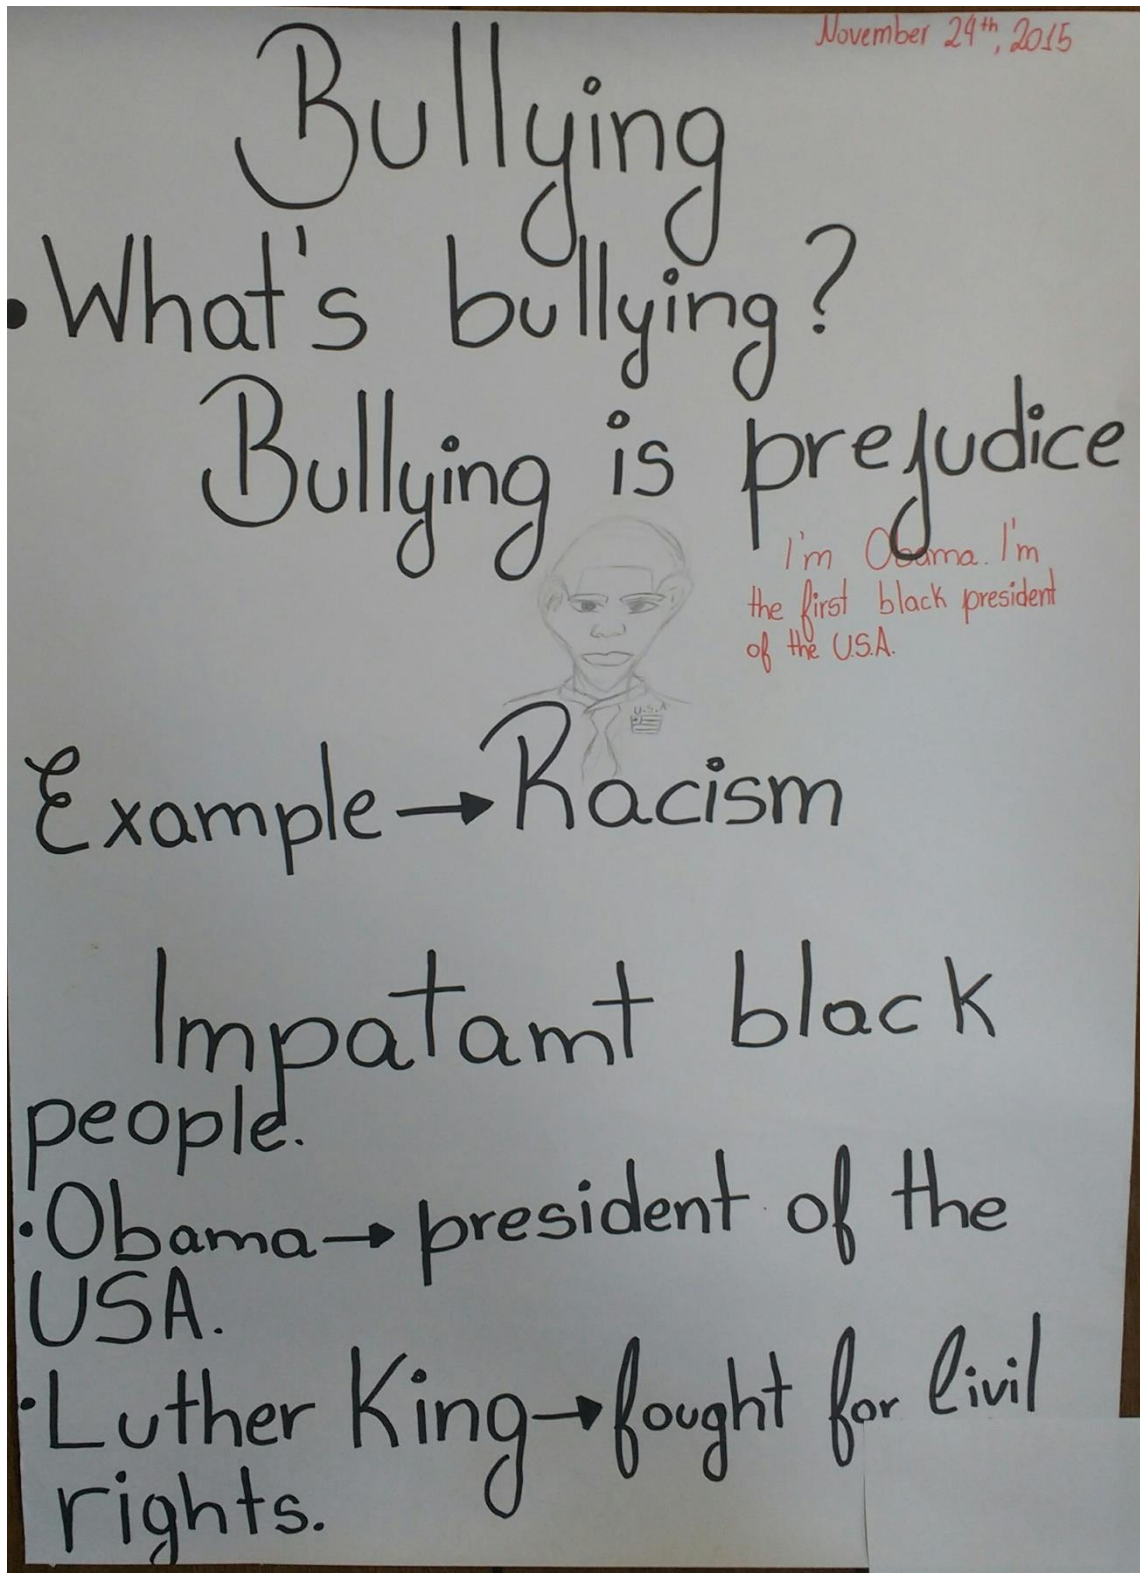 November 24th, 2015
Bullying
• What's bullying?
Bullying is prejudice
I'm Obama. I'm
the first black president
of the U.S.A.
U.S.A
Example → Racism
Impatamt black
people.
• Obama → president of the
USA.
• Luther King → fought for Civil
rights.